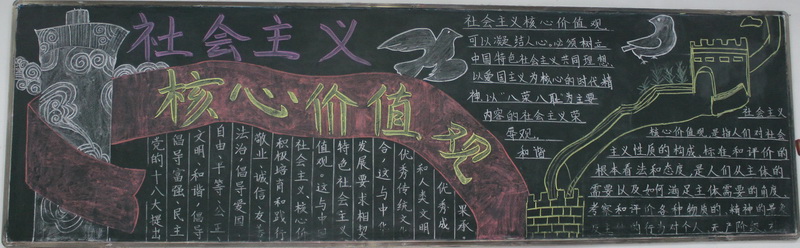 社会主义
核心价值观
党的十八大提出
倡导富强、民主
文明、和谐、倡导
自由、平等、公正、
法治，倡导爱国
敬业、诚信、友善
积极培育和践行
社会主义核心价
值观。这与中国
特色社会主义
发展要求相契
合，这与中华
优秀传统文化
和人类文明
优秀成
果承
社会主义核心价值观,
可以凝结人心,必须树立
中国特色社会主义共同理想,
以爱国主义为核心的时代精
神,以"八荣八耻"为主要
内容的社会主义荣
辱观.
和谐
社会主义
核心价值观,是指人们对社会
主义性质的构成、标在和评价的
根本看法和态度,是人们从主体的
需要以及如何涵足主体需要的角度,
考察和评价各种物质的、精神的
的行为对个人